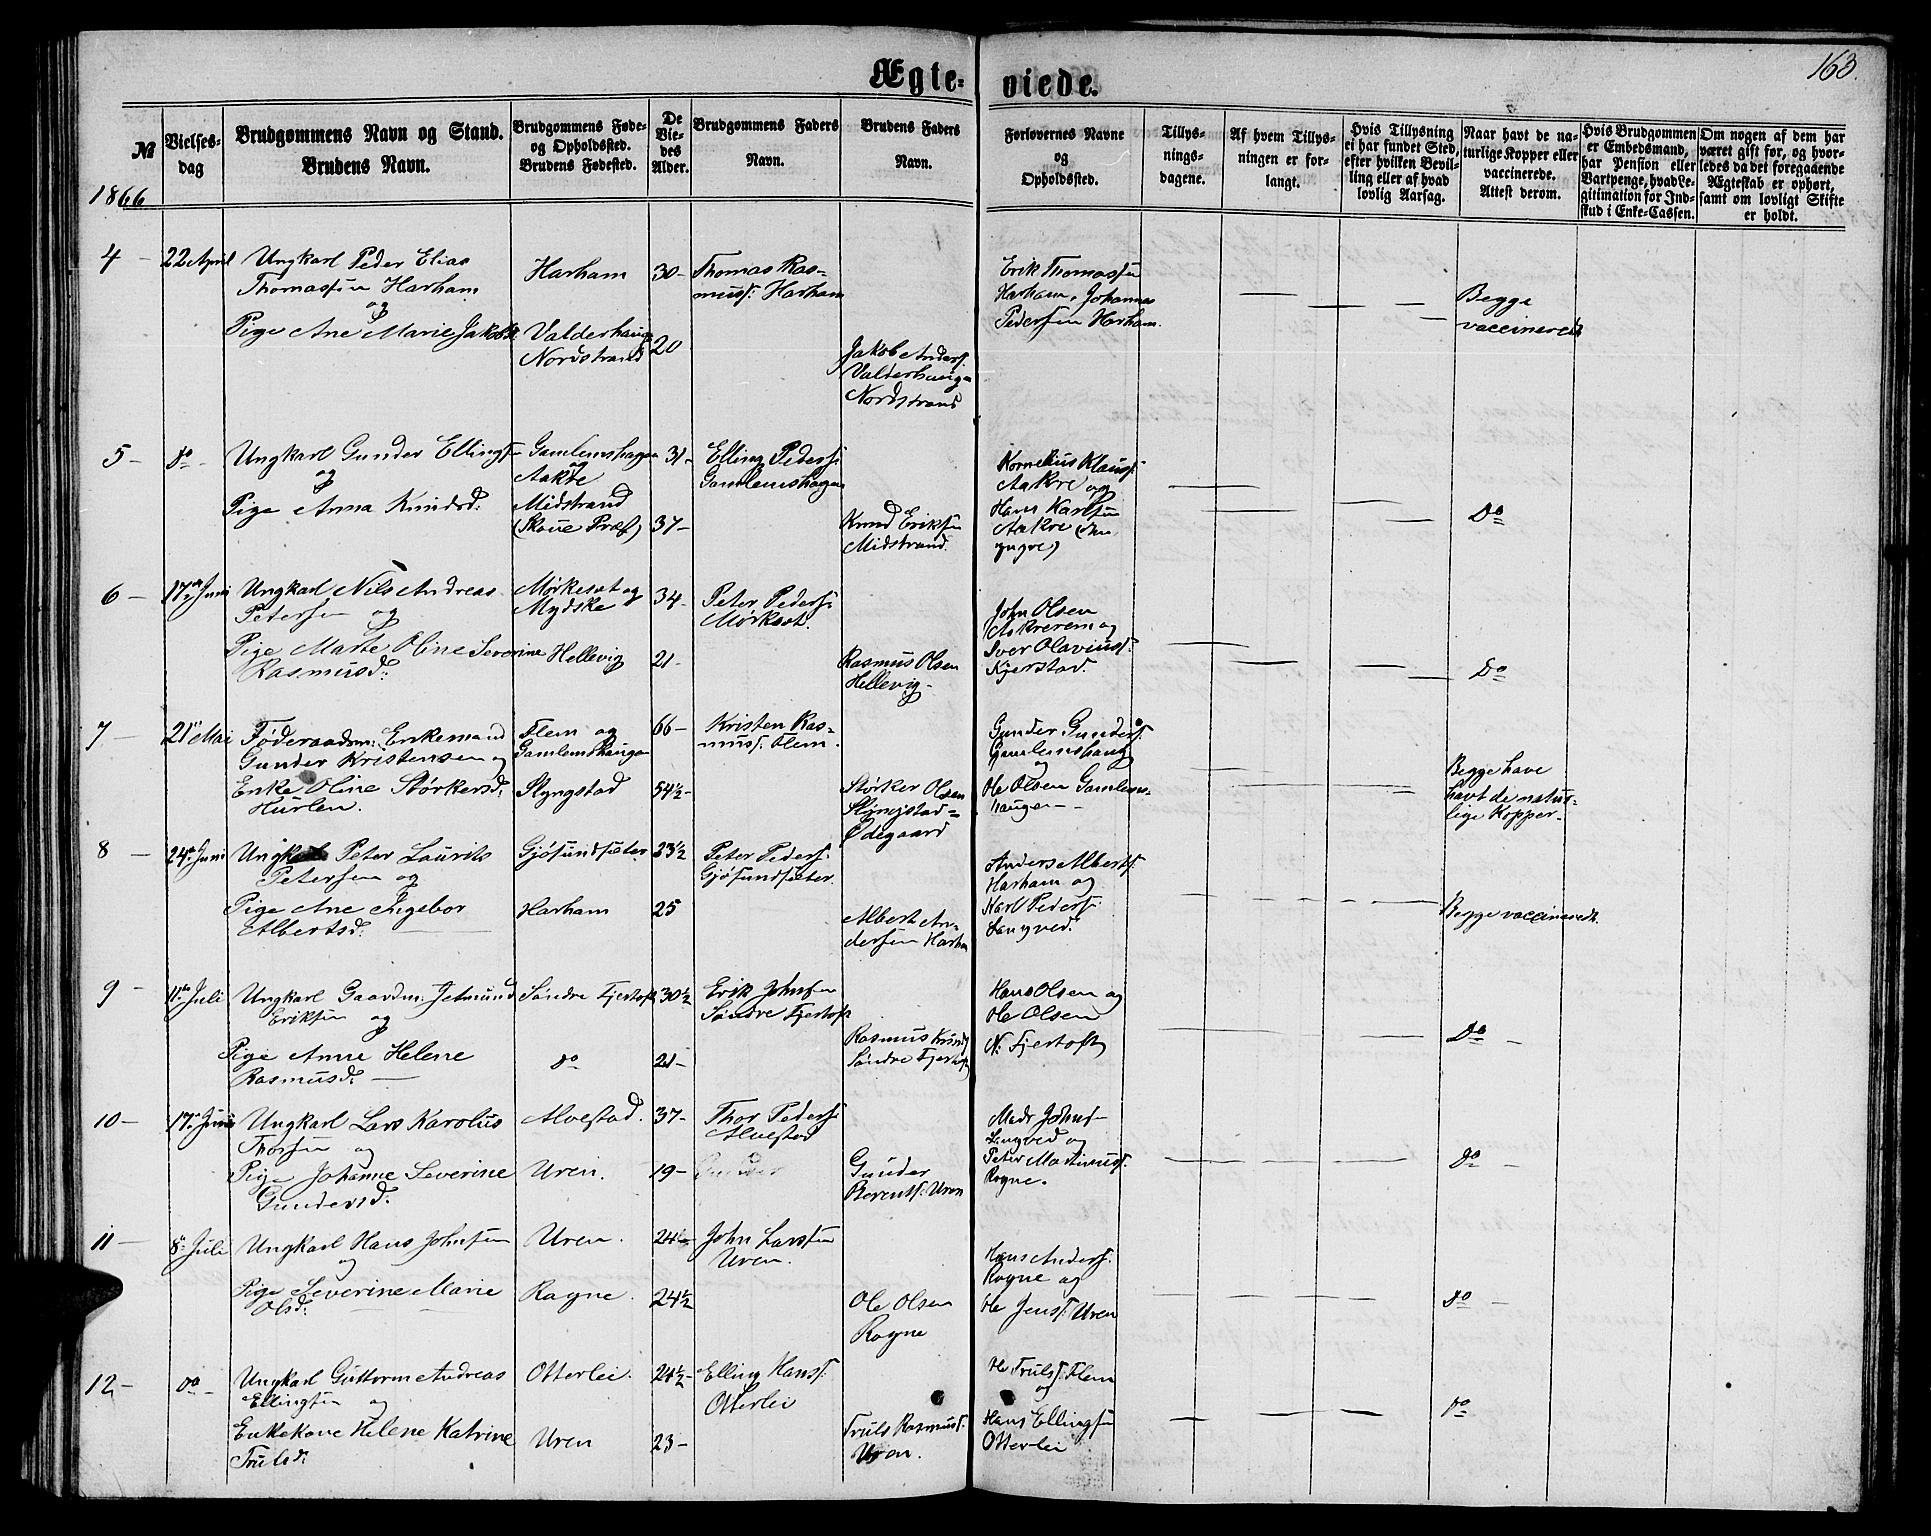 Ægte-
viede.
163.
№
Vielses-
dag
Brudgommens Navn og Stand.
Brudens Navn.
Brudgommens Føde-
og Opholdssted.
Brudens Fødested.
De
Vie-
des
Alder.
Brudgommens Faders
Navn.
Brudens Faders
Navn.
Forlovernes Navne
og
Opholdssted.
Tillys-
nings-
dagene.
Af hvem Tillys-
ningen er for-
langt.
Hvis Tillysning
ei har fundet Sted,
efter hvilken Bevil-
ling eller af hvad
lovlig Aarsag.
Naar havt de na-
turlige Kopper eller
vaccinerede.
Attest derom.
Hvis Brudgommen
er Embedsmand,
har Pension eller
Vartpenge, hvad Le-
gitimation for Ind-
skud i Enke-Cassen.
Om nogen af dem har
været gift før, og hvor-
ledes da det foregaaende
Ægteskab er ophørt,
samt om lovligt Skifte
er holdt.
1866
4 - 22 April
Ungkarl Peder Elias
Thomassen Harham
og
Pige Ane Marie Jakobsd
Harham
Valderhaug
Nordstrand
30 -
20
Thomas Ras-
muss: Harham
Jakob Anders:
Valderhaug
Nordstrand
Erik Thomassen
Harham, Johannes
Pedersen Harham.
Begge
vaccinerede
5 - do -
Ungkarl Gunder Ellings-
og
Pige Anna Knudsd:
Gamlemshagen
og
Aakre
Midstrand
(Skoue Præf)
31 -
37 -
Elling Peders:
Gamlemshagen
Knud Eriksen
Midstrand.
Kornelius Klaus:
Aakre og
Hans Karlsen
Aakre (den
yngre)
Do
6 - 17de Juni
Ungkarl Nils Andreas
Petersen og
Pige Marte Oline Severine
Rasmusd:
Mørkeset og
Mydske
Hellevig
34 -
21 -
Peter Peders:
Mørkset.
Rasmus Olsen
Hellevig -
John Olsen
Askrerem og
Iver Olavius:
Kjerstad.
Do
7 - 21de Mai
Føderaadsm: Enkemand
Gunder Kristensen og
Enke Oline Størkersd:
Hurlen.
Flem og
Gamlemshaugen
Slyngstad
66 -
54½ -
Kristen Ras-
muss: Flem.
Størker Olsen
Slyngstad=
Ødegaard
Gunder Gunders:
Gamlemshaug
og
Ole Olsen Gamlems-
haugen -
Begge have
havt de natur-
lige Kopper -
8 - 24de Juni
Ungkarl Peter Laurits
Petersen og
Pige Ane Ingebor
Albertsd:
Gjøsundsæter
Harham
23½
25
Peter Peders:
Gjøsundsæter.
Albert An-
dersen Harham
Anders Alberts:
Harham og
Karl Peders:
Langved.
Begge vaccinerede.
9 - 11te Juli
Ungkarl Gaardm: Jetmund
Eriksen og
Pige Anne Helene
Rasmusd: -
Søndre Fjertoft
do
30½
21 -
Erik Johnsen
Søndre Fjertoft
Rasmus Knuds
Søndre Fjertoft
Hans Olsen og
Ole Olsen
N: Fjertoft
Do -
10 - 17de Juni
Ungkarl Lars Karolus
Thorsen og
Pige Johanne Severine
Gundersd:
Alvestad.
Uren.
37 -
19 -
Thor Peders:
Alvestad
Gunder
Gunder
Berents: Uren
Mads Johns-
Langved og
Peter Martinus:
Rogne.
Do -
11 - 8de Juli
Ungkarl Hans Johnsen
og
Pige Severine Marie
Olsd:
Uren.
Rogne.
24½
John Larssen
Uren.
Ole Olsen
Rogne
Hans Anders:
Rogne og
Ole Jens: Uren
24½
Do -
12 - do -
Ungkarl Guttorm Andreas
Ellingsen og
Enkekone Helene Katrine
Trulsd:
Otterlei.
Uren
24½ -
23 -
Elling Hans:
Otterlei
Truls Rasmus:
Uren.
Ole Truls: Flem
og
Hans Ellingsen
Otterlei
Do